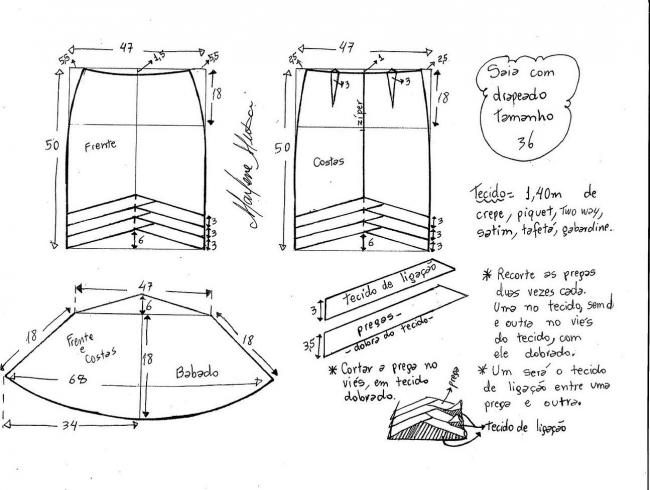 47
5,5
1,5
5,5
18
50
Frente
3
3
3
6
Marlene Mukai
47
2,5
1
2,5
3
3
18
zíper
50
Costas
3
3
3
6
Saia com
drapeado
tamanho
36
Tecido= 1,40m de
crepe, piquet, Two way,
satim, tafetá, gabardine.
47
6
18
18
Frente
e
Costas
18
68
Babado
34
tecido de ligação
3
pregas
dobra do tecido
3,5
* Cortar a prega no
viés, em tecido
dobrado.
prega
tecido de ligação
* Recorte as pregas
duas vezes cada.
Uma no tecido, sem d
e outra no viés
do tecido, com
ele dobrado.
* Um será o tecido
de ligação entre uma
prega e outra.